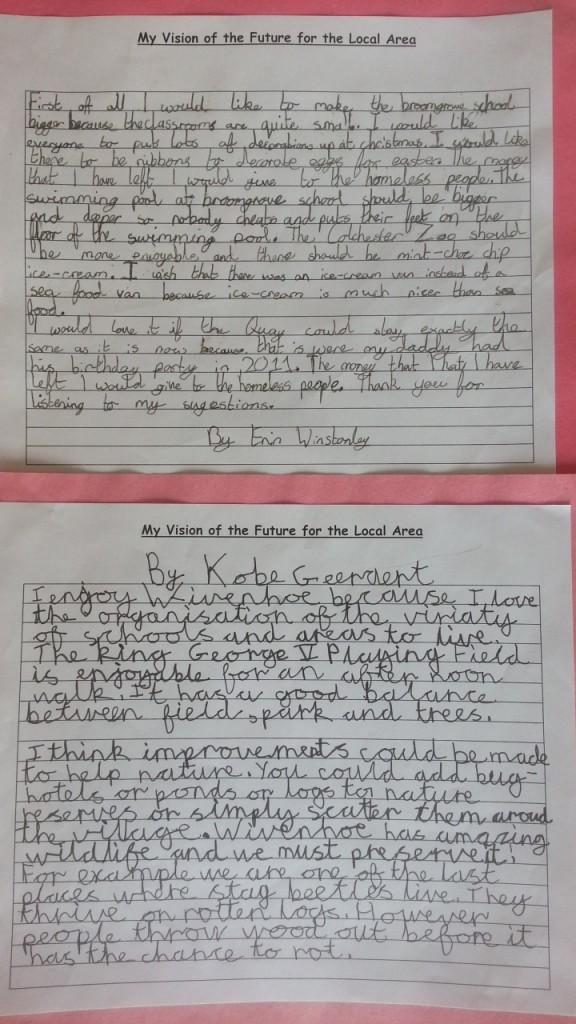 My Vision of the Future for the Local Area
First of all I would like to make the broomgrove school
bigger because the classrooms are quite small. I would like
everyone to put lots of decorations up at christmas. I would like
there to be ribbons to decorate eggs for easter. The money
that I have left I would give to the homeless people. The
swimming pool at broomgrove school should be bigger
and deeper so nobody cheats and puts their feet on the
floor of the swimming pool. The Colchester Zoo should
be more enjoyable, and there should be mint-choc chip
ice-cream. I wish that there was an ice-cream van instead of a
sea food van because ice-cream is much nicer than sea
food.
I would love it if the Quay could stay exactly the
same as it is now because that is were my daddy had
his birthday party in 2011. The money that I have
left I would give to the homeless people. Thank you for
listening to my sugestions.
By Erin Winstanley
My Vision of the Future for the Local Area
By Kobe Geerdent
I enjoy Wivenhoe because I love
the organisation of the viriaty
of schools and areas to live.
The King George V Playing Field
is enjoyable for an after noon
walk. It has a good balance
between field, park and trees.
I think improvements could be made
to help nature. You could add bug-
hotels or ponds or logs to nature
reserves or simply scatter them aroud
the village. Wivenhoe has amazing
wildlife and we must preserve it.
For example we are one of the last
places where stag beetles live. They
thrive on rotten logs. However
people throw wood out before it
has the chance to rot.